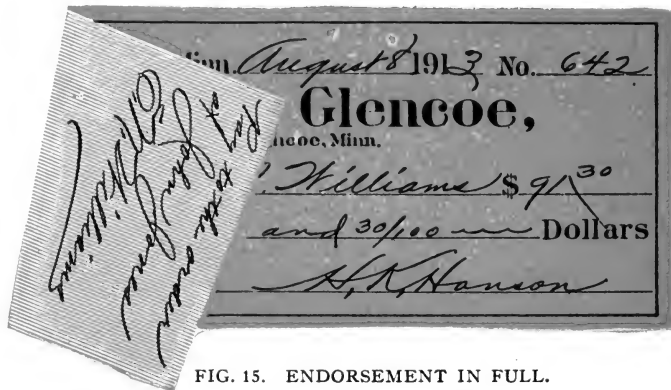 Minn. August 8 1913 No. 642
Glencoe,
ncoe, Minn.
. Williams $ 91 30
and 30/100 Dollars
H. K. Hanson
Pay to the order
of
John Jones
Williams
FIG. 15. ENDORSEMENT IN FULL.